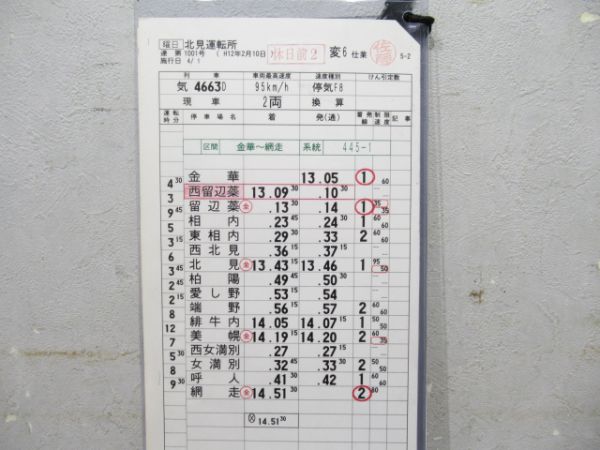 曜日 北見運転所
達 第 1001号 ( H12年2月10日 ) 休日前2 変6 仕業 佐藤
施行日 4/1 5-2
列車 車両最高速度 速度種別 けん引定数
気 4663D 95km/h 停気F8
現車 2両 換算
運転時分 停車場名 着 発(通) 着発線 制限速度 記事
区間 金華〜網走 系統 445-1
金華 13.05 1 60
4 30 西留辺蘂 13.09 30 .10 30
3 留辺蘂 金 .13 30 .14 1 35 35
9 45 相内 .23 45 .24 30 1 60 60
5 東相内 .29 30 .33 2 60
3 15 西北見 .36 15 .37 15
6 北見 金 13.43 15 13.46 1 95 50
3 45 柏陽 .49 45 .50 30
2 愛し野 .53 .54
2 15 端野 .56 15 .57 2 60 60
8 緋牛内 14.05 14.07 15 1 50 50
12 美幌 金 14.19 15 14.20 2 60 35
7 西女満別 .27 .27 15
5 30 女満別 .32 45 .33 30 2 50 50
8 呼人 .41 30 .42 1 60 60
9 30 網走 金 14.51 30 2 80
14.51 30